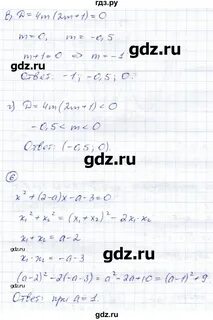 гдз.ру
в) D = 4m(2m+1) = 0
m = 0, m = -0,5
m+1 = 0 => m = -1
Ответ: -1; -0,5; 0.
г) D = 4m(2m+1) < 0
-0,5 < m < 0
Ответ: (-0,5; 0).
⑥
x² + (2-a)x - a - 3 = 0
x₁² + x₂² = (x₁ + x₂)² - 2x₁x₂
x₁ + x₂ = a - 2
x₁x₂ = -a - 3
(a-2)² - 2(-a-3) = a² - 2a + 10 = (a-1)² + 9
Ответ: при a = 1.
gdz.ru